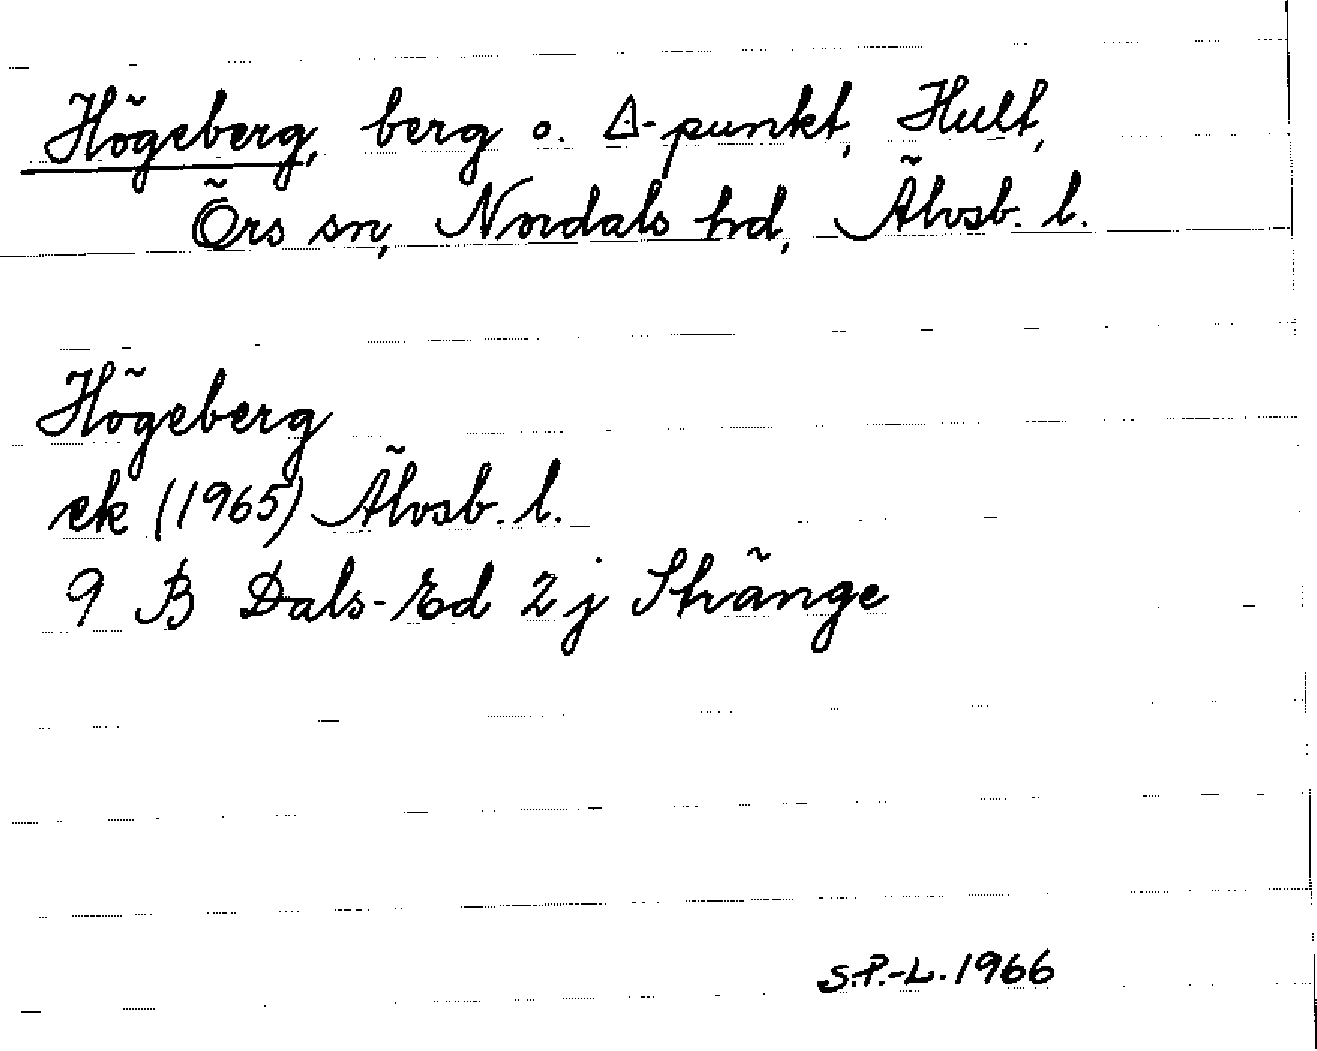 Högeberg, berg o. △-punkt, Hult,
Örs sn, Nordals hd, Älvsb. l.
Högeberg
ek (1965) Älvsb. l.
9 B Dals-Ed 2 j Stränge
S.P.-L. 1966